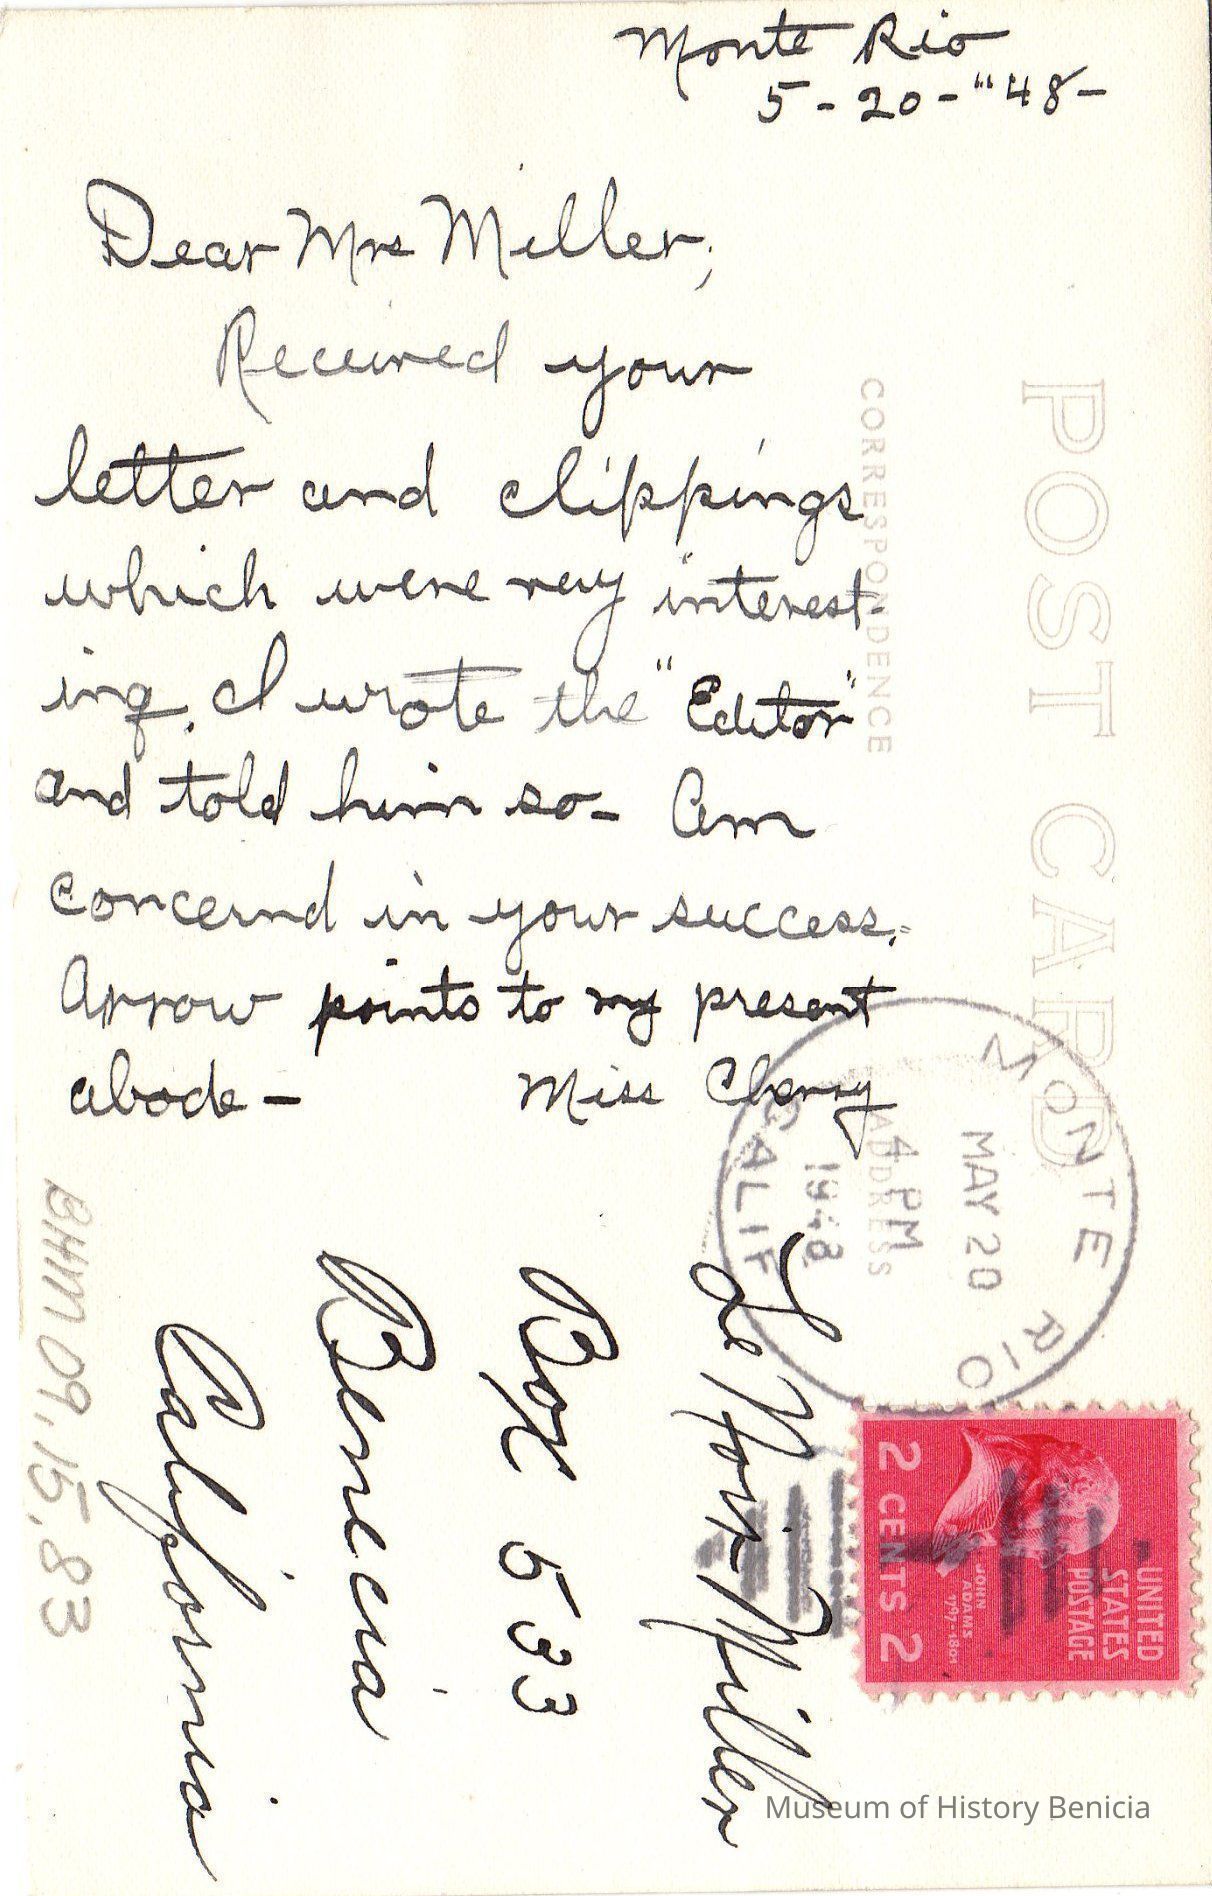 Monte Rio
5-20-"48-
Dear Mrs Miller,
Received your
letter and clippings
which were very interest-
ing. I wrote the "Editor"
and told him so- Am
concernd in your success.
Arrow points to my present
abode-
Miss Cherry
POST CARD
CORRESPONDENCE
ADDRESS
MONTE RIO
MAY 20
4 PM
1948
CALIF
UNITED
STATES
POSTAGE
JOHN
ADAMS
1797-1801
2 CENTS 2
Le Noir Miller
Box 533
Benecia
California
BHM 09.15.83
Museum of History Benicia